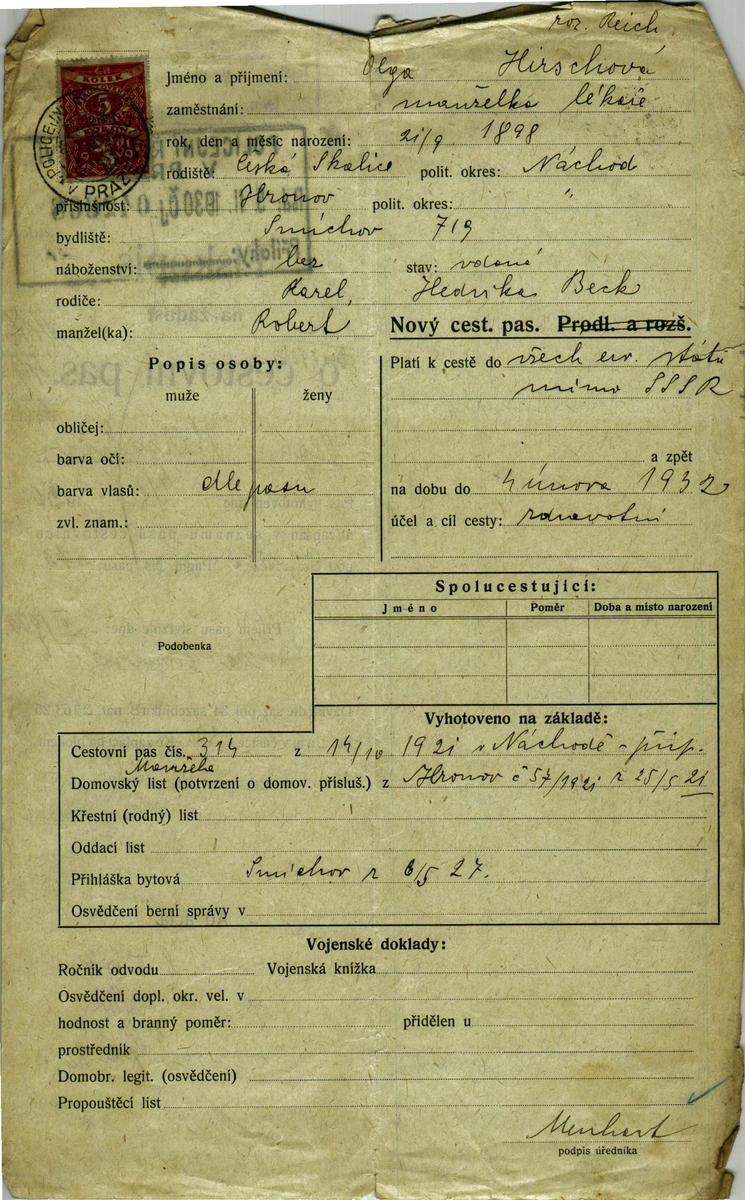 roz. Reich
Jméno a příjmení: Olga Hirschová
zaměstnání: manželka lékaře
rok, den a měsíc narození: 21/9 1898
rodiště: Česká Skalice polit. okres: Náchod
příslušnost: Hronov polit. okres: "
bydliště: Smíchov 719
náboženství: bez stav: vdaná
rodiče: Karel, Hedvika Beck
manžel(ka): Robert
Nový cest. pas. Prodl. a rozš.
KOLEK
5
PRAZ
1930
Přílohy:
Popis osoby:
muže ženy
obličej:
barva očí:
barva vlasů: dle pasu
zvl. znam.:
Platí k cestě do všech evr. států
mimo SSSR
a zpět
na dobu do 4 února 1932
účel a cíl cesty: zdravotní
Podobenka
Spolucestující:
Jméno Poměr Doba a místo narození
Vyhotoveno na základě:
Cestovní pas čís. 314 z 14/10 1921 v Náchodě - přip.
Manžela
Domovský list (potvrzení o domov. přísluš.) z Hronov č 57/1921 z 25/5 21
Křestní (rodný) list
Oddací list
Přihláška bytová Smíchov z 6/5 27.
Osvědčení berní správy v
Vojenské doklady:
Ročník odvodu Vojenská knížka
Osvědčení dopl. okr. vel. v
hodnost a branný poměr: přidělen u
prostředník
Domobr. legit. (osvědčení)
Propouštěcí list
Menhart
podpis úředníka